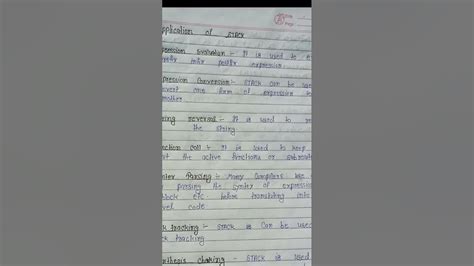 pplication of STACK
pression Evaluation :- It is used to
prefix postfix expression.
pression Conversion :- STACK can be use
onvert one form of expression to
nother.
ring reversal :- It is used to re
the string.
nction call :- It is used to keep
the active functions or subroutin
ntax Parsing :- Many Compilers use
parsing the syntax of expression
block etc. before translating into
level code
k tracking :- STACK is Can be used
ck tracking
nthesis checking :- STACK is used